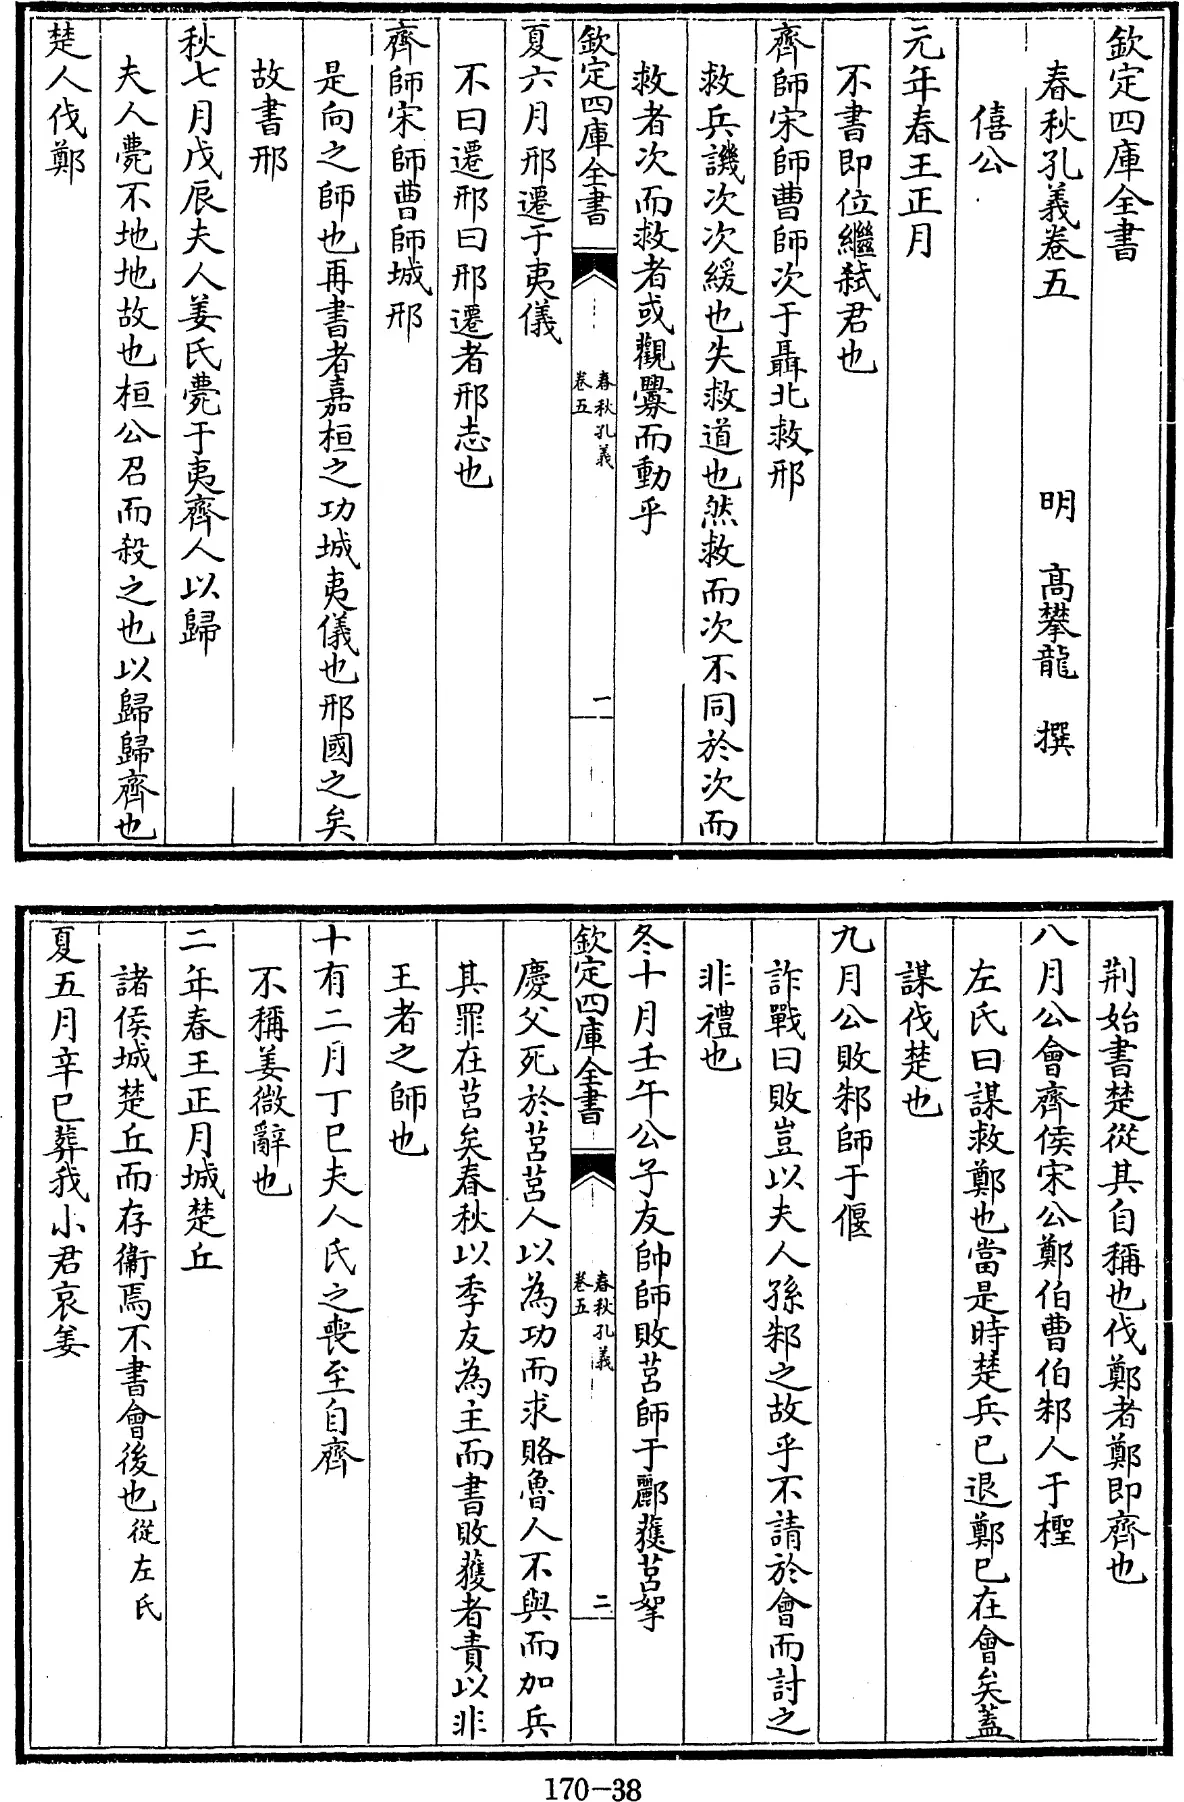 欽定四庫全書
春秋孔義卷五
明 高攀龍 撰
僖公
元年春王正月
不書即位繼弑君也
齊師宋師曹師次于聶北救邢
救兵譏次次緩也失救道也然救而次不同於次而
救者次而救者或觀釁而動乎
欽定四庫全書
春秋孔義
卷五
一
夏六月邢遷于夷儀
不曰遷邢曰邢遷者邢志也
齊師宋師曹師城邢
是向之師也再書者嘉桓之功城夷儀也邢國之矣
故書邢
秋七月戊辰夫人姜氏薨于夷齊人以歸
夫人薨不地地故也桓公召而殺之也以歸歸齊也
楚人伐鄭
荆始書楚從其自稱也伐鄭者鄭即齊也
八月公會齊侯宋公鄭伯曹伯邾人于檉
左氏曰謀救鄭也當是時楚兵已退鄭已在會矣蓋
謀伐楚也
九月公敗邾師于偃
詐戰曰敗豈以夫人孫邾之故乎不請於會而討之
非禮也
冬十月壬午公子友帥師敗莒師于酈獲莒挐
欽定四庫全書
春秋孔義
卷五
二
慶父死於莒莒人以為功而求賂魯人不與而加兵
其罪在莒矣春秋以季友為主而書敗獲者責以非
王者之師也
十有二月丁巳夫人氏之喪至自齊
不稱姜微辭也
二年春王正月城楚丘
諸侯城楚丘而存衞焉不書會後也從左氏
夏五月辛巳葬我小君哀姜
170-38